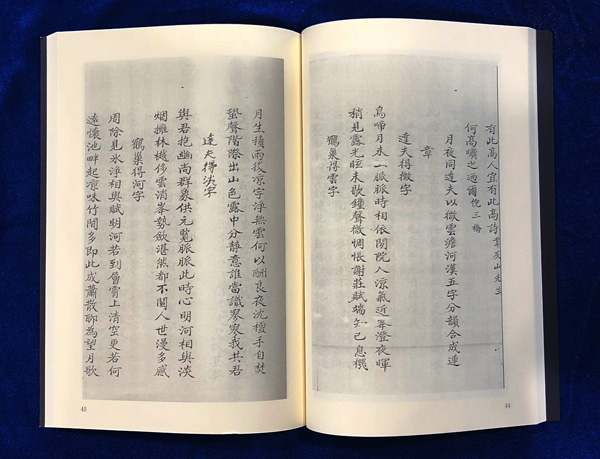 有此高人宜有此高詩韋友山先生
何高曠之過爾倪三梅
月夜同達夫以微雲澹河漢五字分韻合成連
章
達夫得微字
烏啼月未一脈脈時相依閑院人涼氣近峯澄夜暉
稍見露光眩未數鐘聲微惆悵謝莊賦端知已息機
鶴巢得雲字
44
月生積雨後凉字浮無雲何以酬良夜沈檀手自焚
蛩聲階際出山色露中分靜意誰當識寥寥我共君
達夫得淡字
與君抱幽尚群象供元覧脈脈此時心明河相與淡
烟擁林樾侈雲消峯勢歛湛然都不關人世漫多感
鶴巢得河字
周除見氷淨相與賦明河若到層霄上清空更若何
遠懷池畔起凉味竹間多即此成蕭散聊為望月歌
45